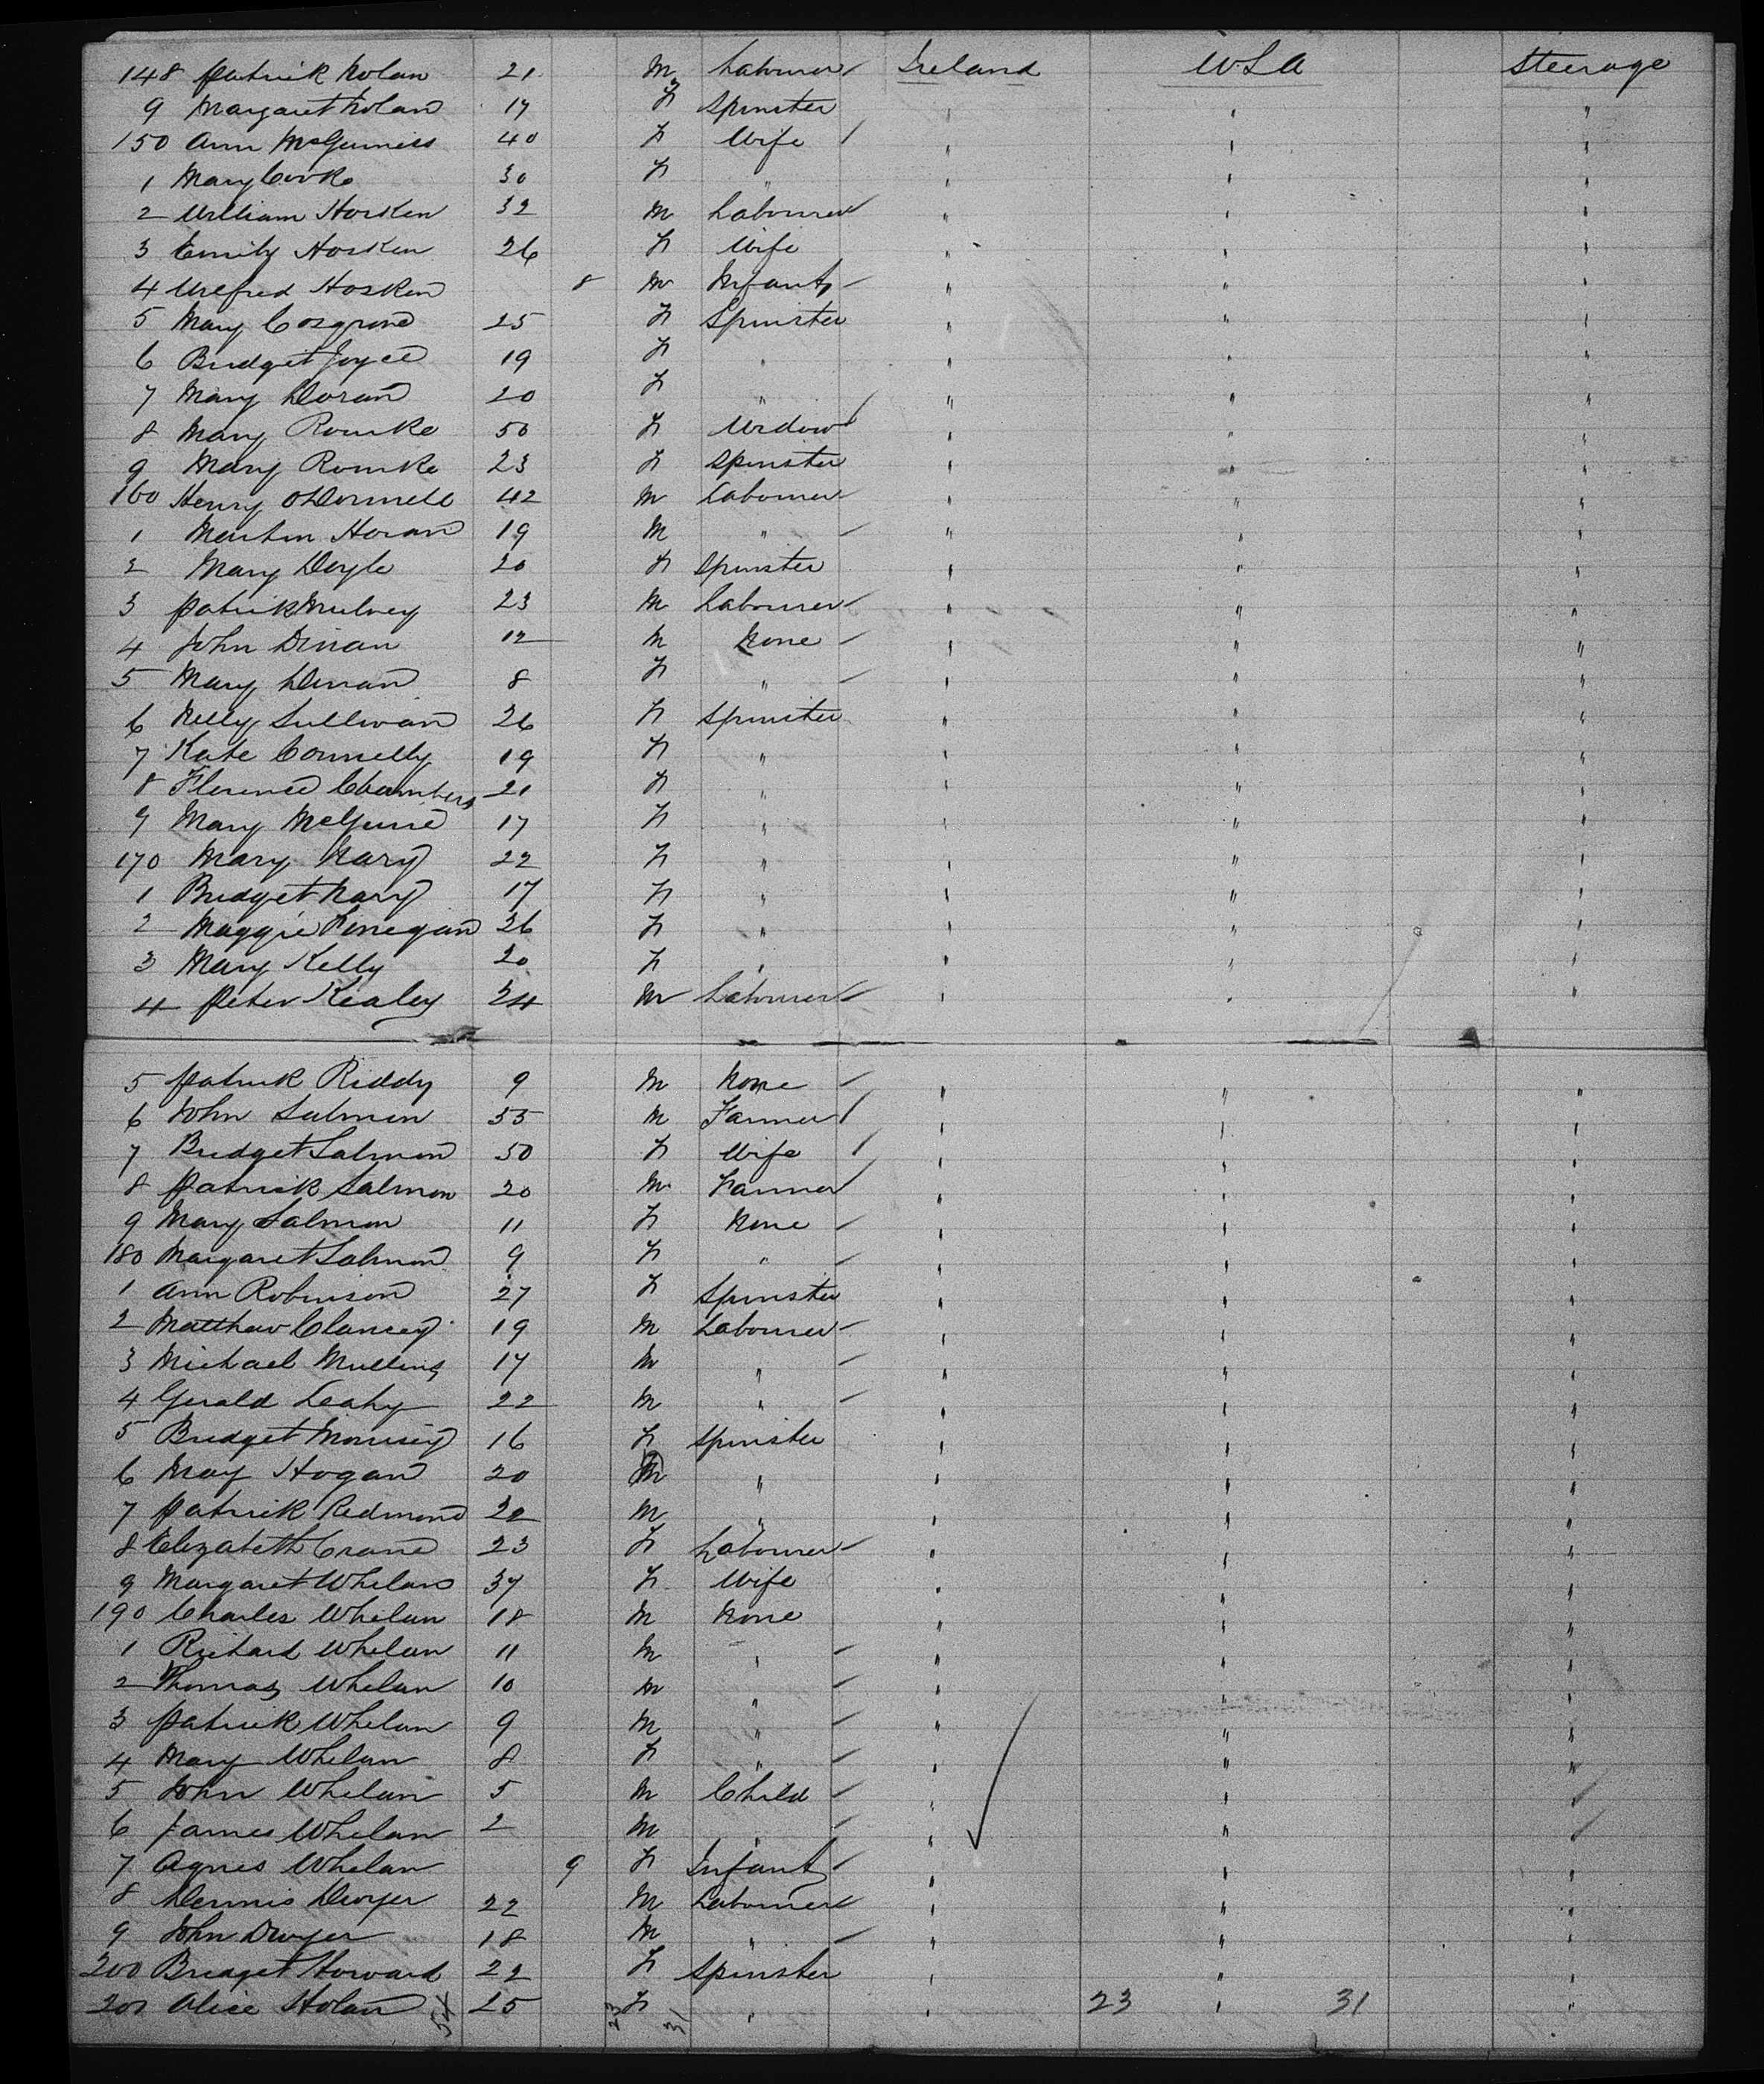 148 Patrick Nolan 21 M Labourer Ireland USA Steerage
9 Margaret Nolan 17 F Spinster " " "
150 Ann McGuiness 40 F Wife " " "
1 Mary Cooke 30 F " " " "
2 William Hosken 32 M Labourer " " "
3 Emily Hosken 26 F Wife " " "
4 Wilfred Hosken 8 M Infant " " "
5 Mary Cosgrove 25 F Spinster " " "
6 Bridget Joyce 19 F " " " "
7 Mary Doran 20 F " " " "
8 Mary Rourke 50 F Widow " " "
9 Mary Rourke 23 F Spinster " " "
160 Henry O'Donnell 42 M Labourer " " "
1 Martin Horan 19 M " " " "
2 Mary Doyle 20 F Spinster " " "
3 Patrick Mulvey 23 M Labourer " " "
4 John Dinan 12 M None " " "
5 Mary Dinan 8 F " " " "
6 Nelly Sullivan 26 F Spinster " " "
7 Kate Connelly 19 F " " " "
8 Florence Chambers 21 F " " " "
9 Mary McGuire 17 F " " " "
170 Mary Nary 22 F " " " "
1 Bridget Nary 17 F " " " "
2 Maggie Finegan 26 F " " " "
3 Mary Kelly 20 F " " " "
4 Peter Kealey 24 M Labourer " " "
5 Patrick Riddy 9 M None " " "
6 John Salmon 55 M Farmer " " "
7 Bridget Salmon 50 F Wife " " "
8 Patrick Salmon 20 M Farmer " " "
9 Mary Salmon 11 F None " " "
180 Margaret Salmon 9 F " " " "
1 Ann Robinson 27 F Spinster " " "
2 Matthew Clancey 19 M Labourer " " "
3 Michael Mullins 17 M " " " "
4 Gerald Leahy 22 M " " " "
5 Bridget Morrisey 16 F Spinster " " "
6 May Hogan 20 M " " " "
7 Patrick Redmond 22 M " " " "
8 Elizabeth Crane 23 F Labourer " " "
9 Margaret Whelan 37 F Wife " " "
190 Charles Whelan 18 M None " " "
1 Richard Whelan 11 M " " " "
2 Thomas Whelan 10 M " " " "
3 Patrick Whelan 9 M " " " "
4 Mary Whelan 8 F " " " "
5 John Whelan 5 M Child " " "
6 James Whelan 2 M " " " "
7 Agnes Whelan 9 F Infant " " "
8 Dennis Dwyer 22 M Labourer " " "
9 John Dwyer 18 M " " " "
200 Bridget Howard 22 F Spinster " " "
201 Alice Holan 54 25 23 F 31 " " 23 " 31 "